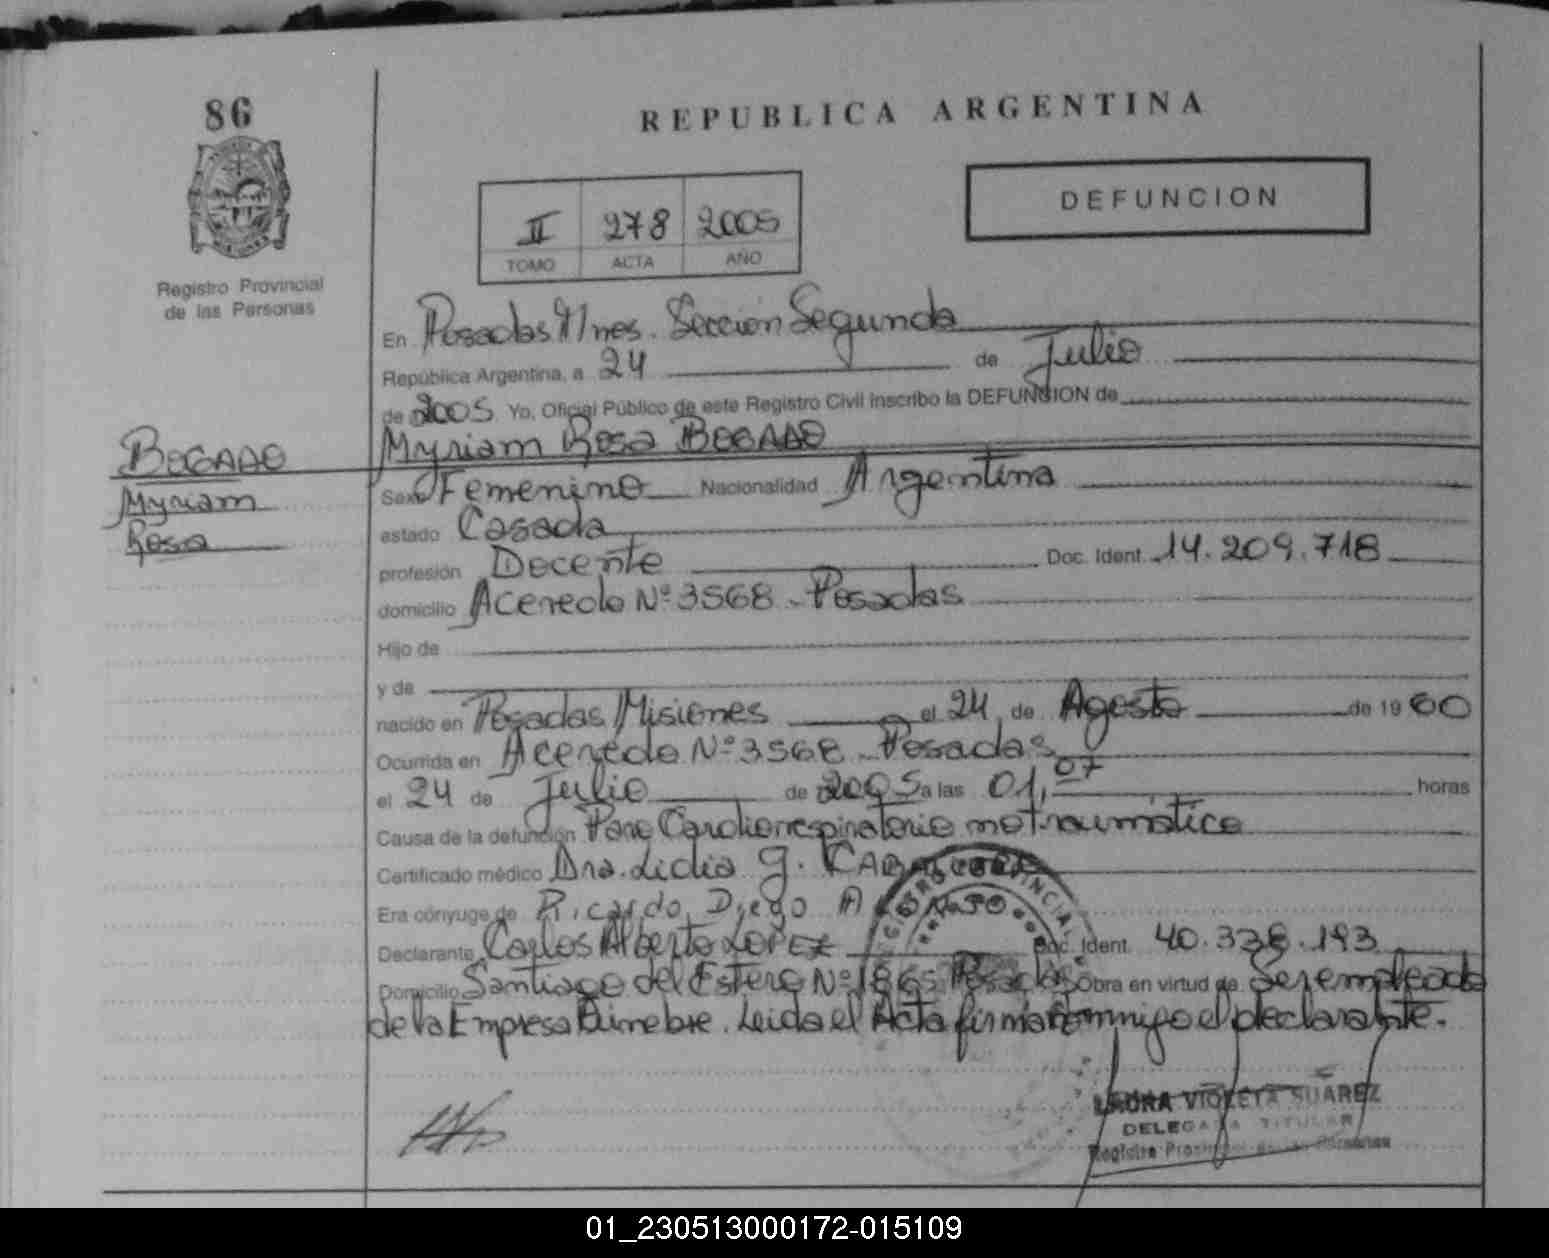 86
REPUBLICA ARGENTINA
DEFUNCION
II 278 2005
TOMO ACTA AÑO
Registro Provincial
de las Personas
En Posadas Mnes. Sección Segunda
República Argentina, a 24 de Julio
de 2005 Yo, Oficial Público de este Registro Civil inscribo la DEFUNCION de
BOGADO
Myriam
Rosa
Myriam Rosa BOGADO
Sexo Femenino Nacionalidad Argentina
estado Casada
profesión Docente Doc. Ident. 14.209.718
domicilio Acevedo Nº 3568 - Posadas
Hijo de
y de
nacido en Posadas Misiones el 24 de Agosto de 19 60
Ocurrida en Acevedo Nº 3568 - Posadas
el 24 de Julio de 2005 a las 01,07 horas
Causa de la defunción Paro Cardiorrespiratorio no traumático
Certificado médico Dra. Lidia G.
Era cónyuge de Ricardo Diego
Declarante Carlos Alberto LOPEZ Doc. Ident. 40.328.193
Domicilio Santiago del Estero Nº 1865 Posadas Obra en virtud de Ser empleado
de la Empresa Fúnebre. Leida el Acta firma conmigo el declarante.
LAURA VIOLETA SUAREZ
DELEGADA TITULAR
Registro Provincial de las Personas
01_230513000172-015109